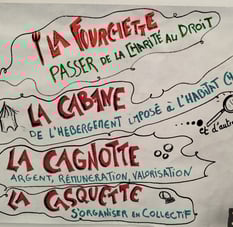 LA FOURCHETTE
PASSER DE LA CHARITÉ AU DROIT
LA CABANE
DE L'HÉBERGEMENT IMPOSÉ À L'HABITAT
et d'autr
LA CAGNOTTE
ARGENT, RÉMUNÉRATION, VALORISATION
LA CASQUETTE
S'ORGANISER EN COLLECTIF